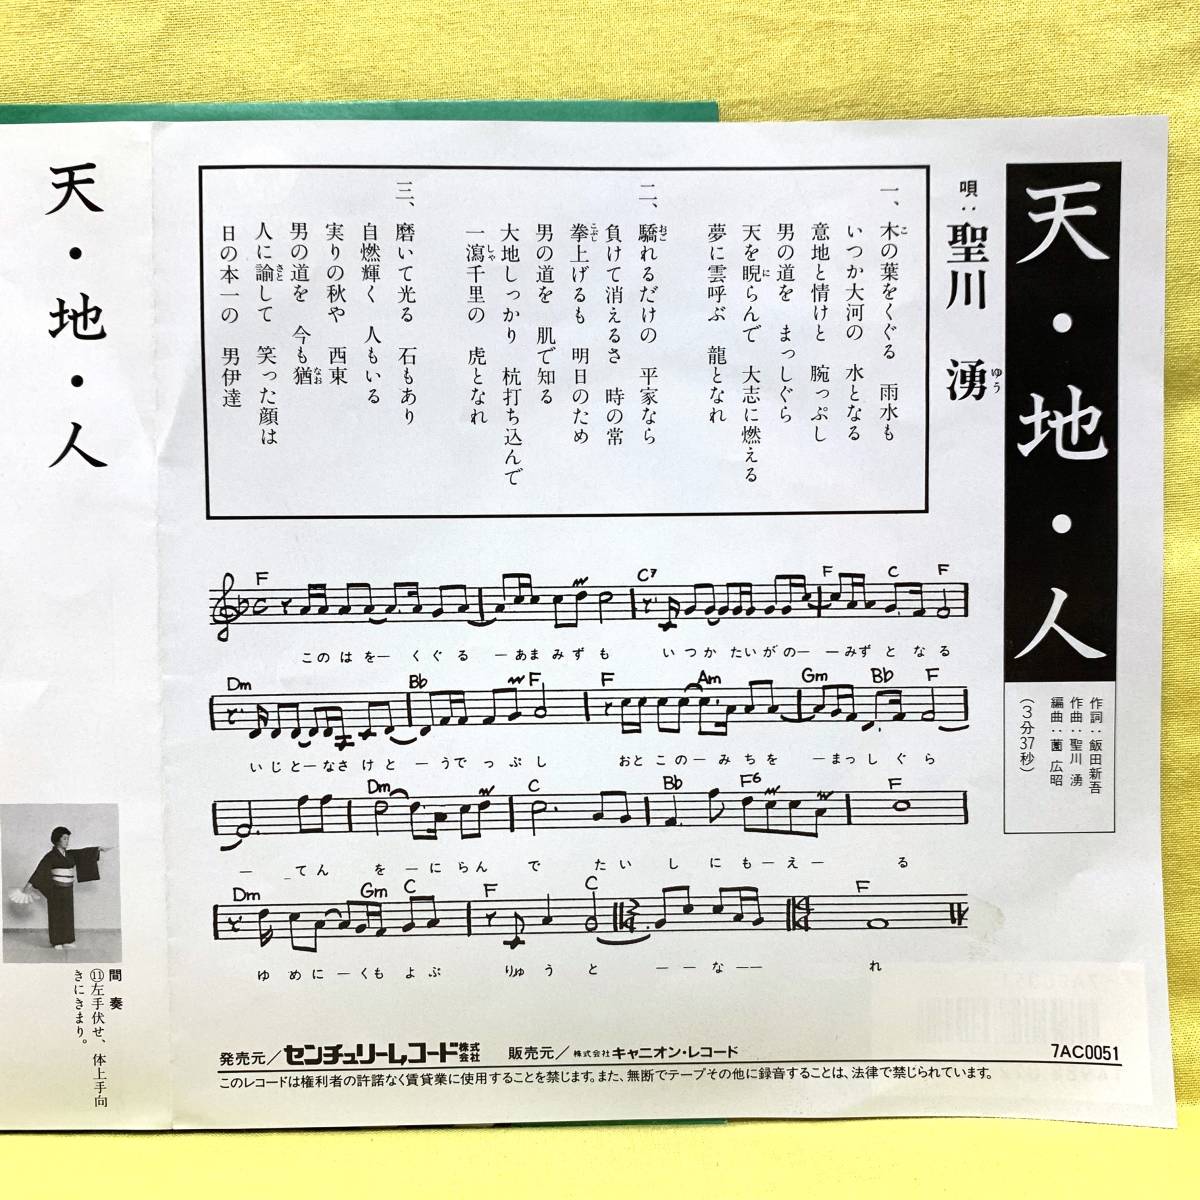 天・地・人
唄：聖川 湧
ゆう
作詞：飯田新吾
作曲：聖川 湧
編曲：薗 広昭
（3分37秒）
一、木の葉をくぐる 雨水も
こ
いつか大河の 水となる
意地と情けと 腕っぷし
男の道を まっしぐら
天を睨らんで 大志に燃える
に
夢に雲呼ぶ 龍となれ
二、驕れるだけの 平家なら
おご
負けて消えるさ 時の常
拳上げるも 明日のため
こぶし
男の道を 肌で知る
大地しっかり 杭打ち込んで
一瀉千里の 虎となれ
しゃ
三、磨いて光る 石もあり
自燃輝く 人もいる
実りの秋や 西東
男の道を 今も猶
なお
人に諭して 笑った顔は
さと
日の本一の 男伊達
F C7 F C F
このはを―くぐる―あまみずも いつかたいがの――みずとなる
Dm Bb F F Am Gm Bb F
いじと―なさけと―うでっぷし おとこの―みちを―まっしぐら
Dm C Bb F6 F
―てんを―にらんで たいしにも―え―る
Dm Gm C F C F
ゆめに―くもよぶ りゅうと――な――れ
発売元／センチュリーレコード株式会社 販売元／株式会社キャニオン・レコード 7AC0051
このレコードは権利者の許諾なく賃貸業に使用することを禁じます。また、無断でテープその他に録音することは、法律で禁じられています。
天・地・人
間奏
⑪左手伏せ、体上手向
きにきまり。